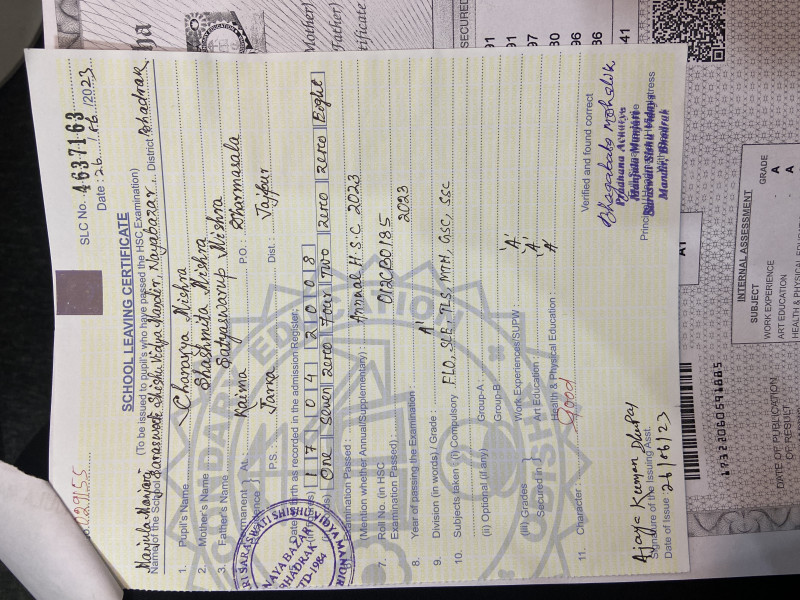 029155
SLC No. 4637163
Date : 26/06/2023
SCHOOL LEAVING CERTIFICATE
(To be issued to pupil's who have passed the HSC Examination)
Name of the School Manjula Manjari Saraswati Shishu Vidya Mandir, Nayabazar District Bhadrak
1. Pupil's Name Charavya Mishra
2. Mother's Name Shashmita Mishra
3. Father's Name Satyaswarup Mishra
At : Kaima P.O. : Dharmasala
P.S. : Jarka Dist. : Jajpur
Birth as recorded in the admission Register.
1 7 0 4 2 0 0 8
One Seven zero Four Two zero zero Eight
Examination Passed :
(Mention whether Annual/Supplementary) : Annual H.S.C 2023
7. Roll No. (in HSC
Examination Passed) : 012CB0185
8. Year of passing the Examination : 2023
9. Division (in words) / Grade : A'
10. Subjects taken : (i) Compulsory FLO, SLE, TLS, MTH, GSC, SSC
(ii) Optional (if any) Group-A :
Group-B
(iii) Grades Work Experiences/SUPW : 'A'
Secured in Art Education : 'A'
Health & Physical Education : A'
11. Character : Good
Verified and found correct
Bhagabata Mohalik
Pradhana Acharya
Manjula Manjari
Saraswati Sishu Vidya
Mandir Bhadrak
Ajaya Kumar Dhupal
Signature of the Issuing Asst.
Date of Issue 26/06/23
SRI SARASWATI SHISHU VIDYA MANDIR
NAYABAZAR
BHADRAK
ESTD-1984
Mother)
Father)
SECURED
91
91
97
80
96
86
41
A1
INTERNAL ASSESSMENT
SUBJECT GRADE
WORK EXPERIENCE - A
ART EDUCATION - A
HEALTH &
17322060591885
DATE OF PUBLICATION
OF RESULT